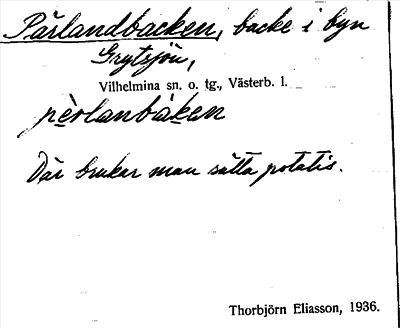 Pärlandbacken, backe i byn
Grytsjön,
Vilhelmina sn. o. tg., Västerb. l.
pèrlanbàken
Där brukar man sätta potatis.
Thorbjörn Eliasson, 1936.